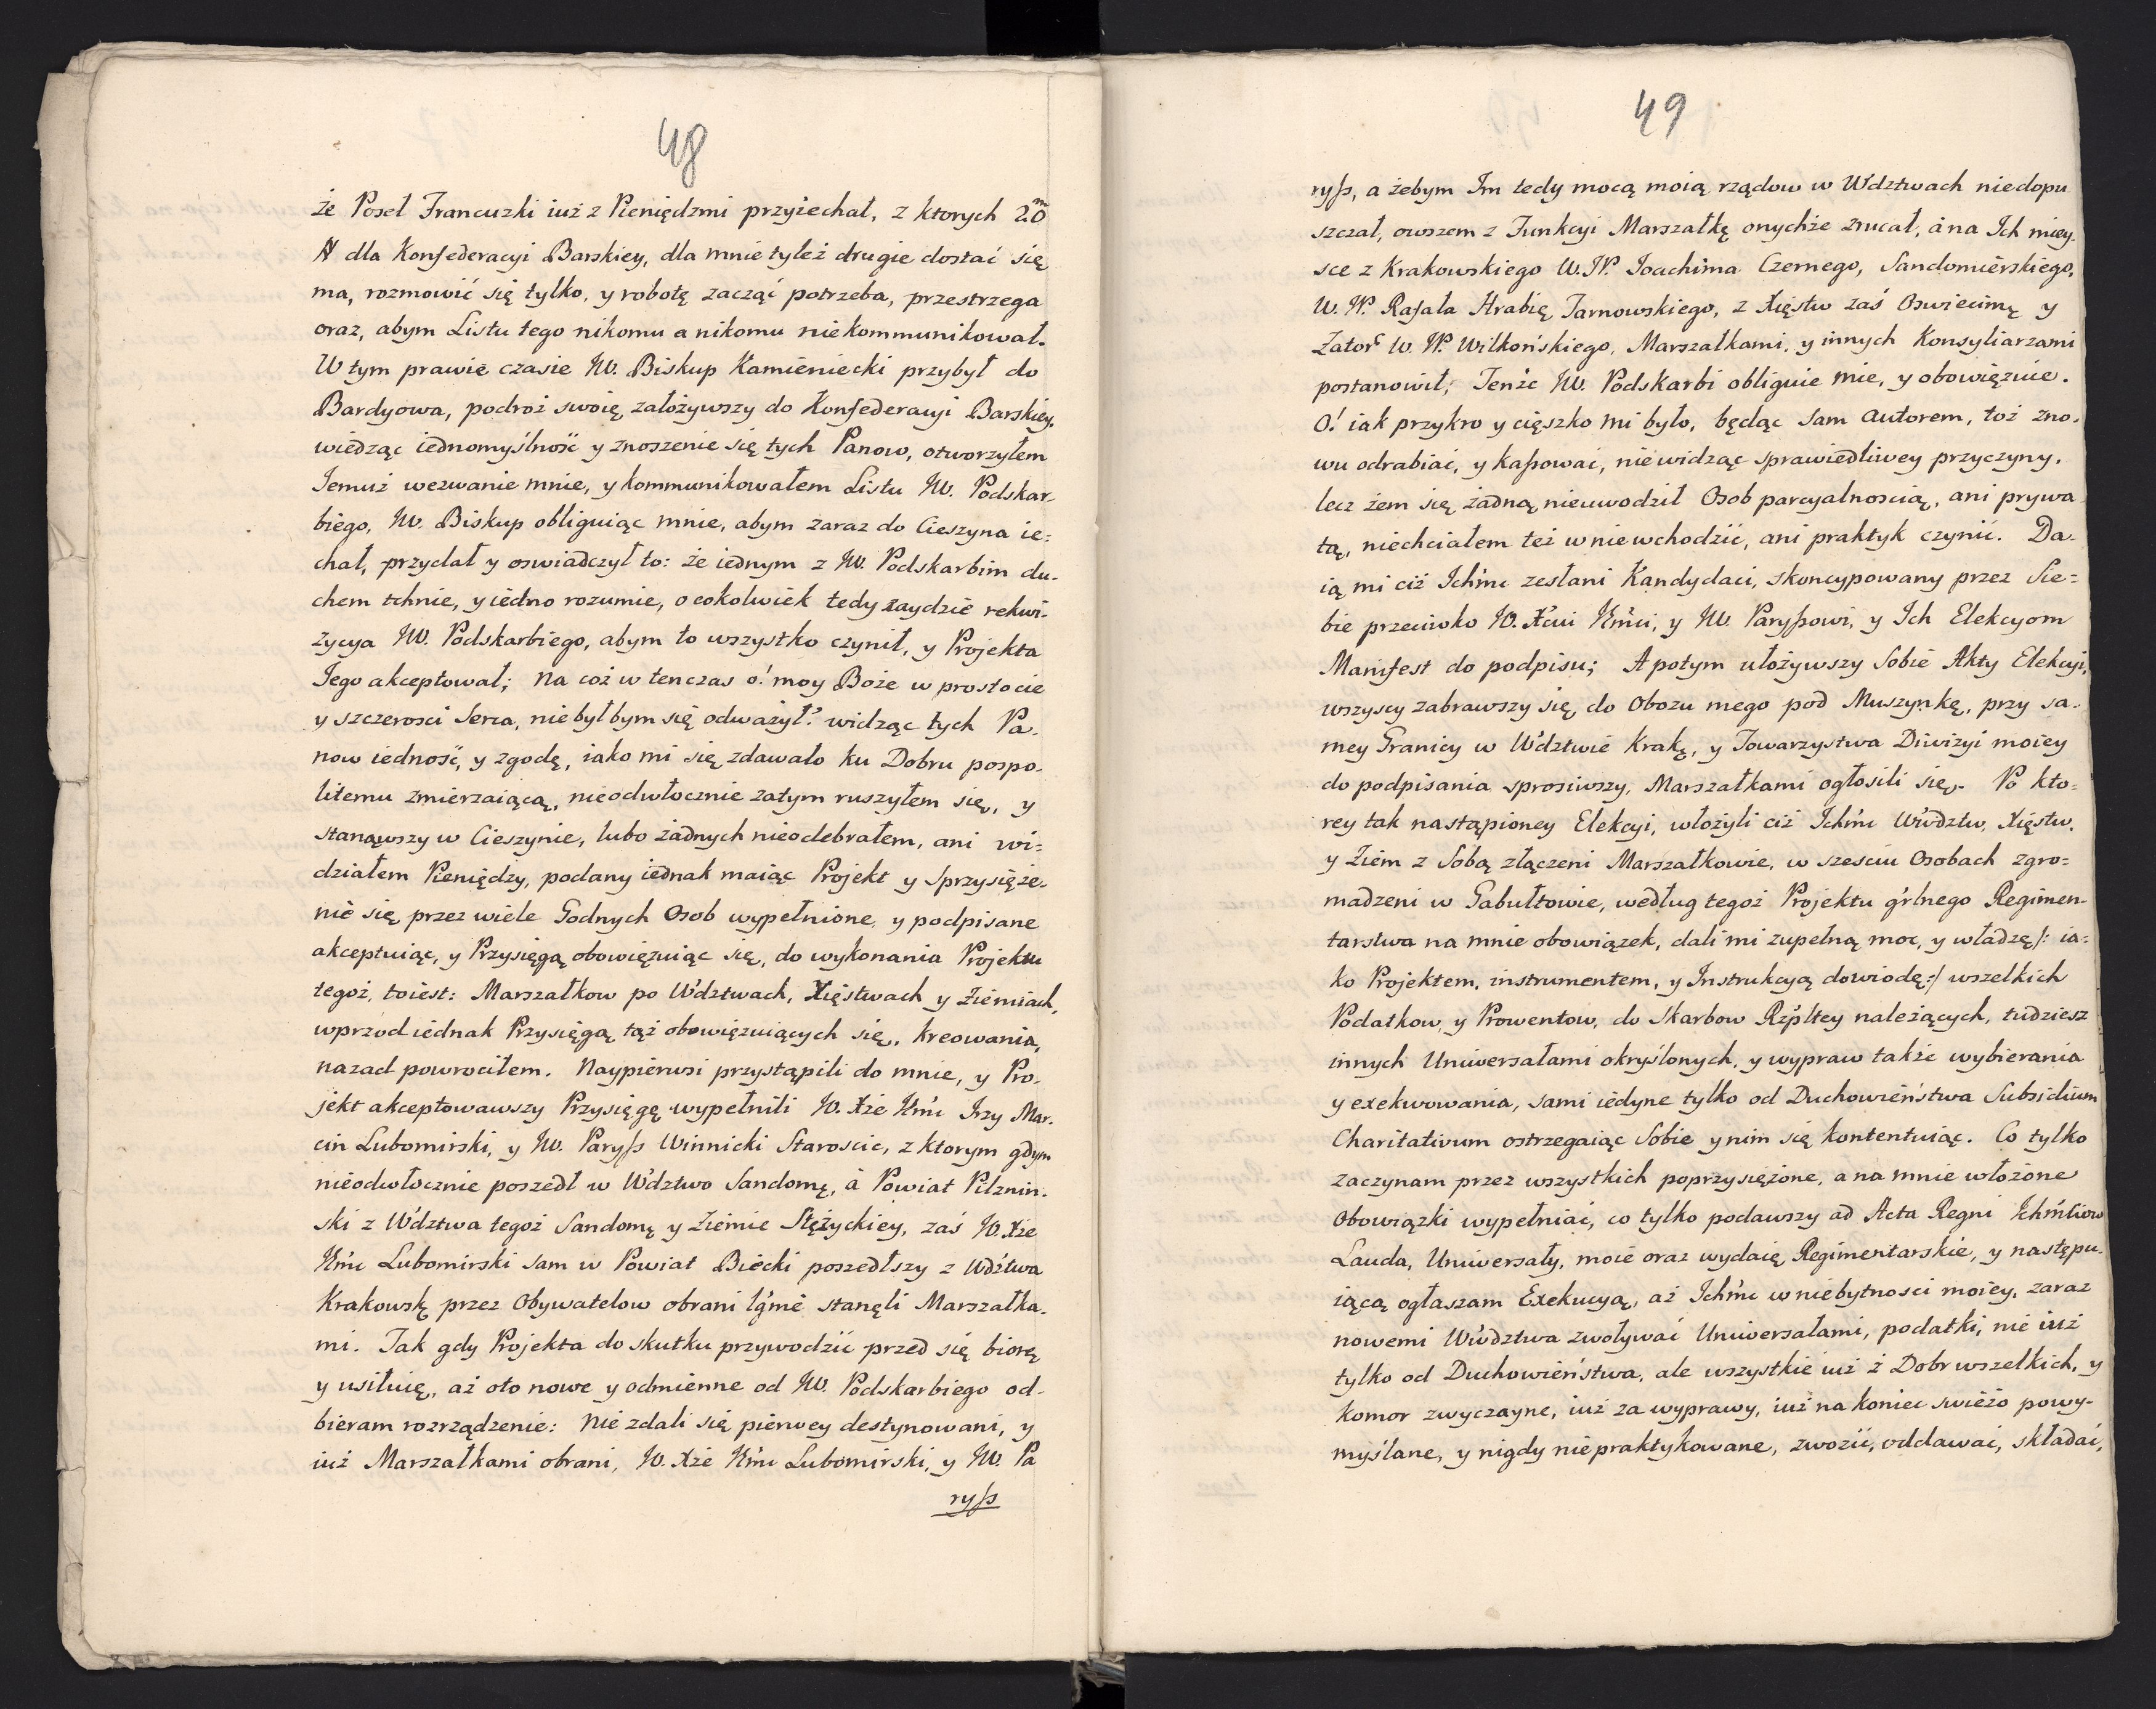 48
że Poseł Francuzki iuż z Pieniędzmi przyiechał, z ktorych 20m
# dla Konfederacyi Barskiey, dla mnie tyleż drugie dostać się
ma, rozmowić się tylko, y robotę zacząć potrzeba, przestrzega
oraz, abym Listu tego nikomu a nikomu niekommunikował.
W tym prawie czasie JW. Biskup Kamieniecki przybył do
Bardyowa, podroż swoię założywszy do Konfederacyi Barskiey,
wiedząc iednomyślność y znoszenie się tych Panow, otworzyłem
Jemuż wezwanie mnie, y kommunikowałem Listu JW. Podskar-
biego, JW. Biskup obliguiąc mnie, abym zaraz do Cieszyna ie=
chał, przydał y oswiadczył to: że iednym z JW. Podskarbim du-
chem tchnie, y iedno rozumie, o cokolwiek tedy zaydzie rekwi-
zycya JW. Podskarbiego, abym to wszystko czynił, y Projekta
Jego akceptował; Na coż w tenczas o! moy Boże w prostocie
y szczerosci Serca, niebyłbym się odważył? widząc tych Pa-
now iedność, y zgodę, iako mi się zdawało ku Dobru pospo-
litemu zmierzaiącą, nieodwłocznie zatym ruszyłem się, y
stanąwszy w Cieszynie, lubo żadnych nieodebrałem, ani wi=
działem Pieniędzy, podany iednak maiąc Projekt y Sprzysięże-
nie się przez wiele Godnych Osob wypełnione, y podpisane
akceptuiąc, y Przysięgą obowięzuiąc się, do wykonania Projektu
tegoż, toiest: Marszałkow po W'dztwach, Xięstwach y Ziemiach,
wprzod iednak Przysięgą tąż obowięzuiących się, kreowania,
nazad powrociłem. Naypierwsi przystąpili do mnie, y Pro-
jekt akceptowawszy Przysięgę wypełnili JO. Xże Jm'ć Jrzy Mar-
cin Lubomirski, y JW. Paryſs Winnicki Staroscic, z ktorym gdym
nieodwłocznie poszedł w W'dztwo Sandomę, à Powiat Pilznin-
ski z W'dztwa tegoż Sandomę y Ziemie Stężyckiey, zaś JO. Xże
Jm'ć Lubomirski sam w Powiat Biecki poszedłszy z Wdz'twa
Krakowskę przez Obywatelow obrani lg'mé stanęli Marszałka-
mi. Tak gdy Projekta do skutku przywodzić przed się biorę
y usiłuię, aż oto nowe y odmienne od JW. Podskarbiego od-
bieram rozrządzenie: Nie zdali się pierwey destynowani, y
iuż Marszałkami obrani, JO. Xże Jm'ć Lubomirski, y JW. Pa
ryſs
49
ryſs, a żebym Im tedy mocą moią rządow w Wdztwach niedopu
szczał, owszem z Funkcyi Marszałkę onychże zrucał, à na Ich miey-
sce z Krakowskiego W. JP. Joachima Czernego, Sandomierskiego,
W. JP. Rafała Hrabię Tarnowskiego, z Xięstw zaś Oswiecimę y
Zator W. JP. Wilkońskiego, Marszałkami, y innych Konsyliarzami
postanowił; Tenże JW. Podskarbi obliguie mie, y obowięzuie.
O! iak przykro y cięszko mi było, będąc sam Autorem, toż zno-
wu odrabiać, y kaſsować, niewidząc sprawiedliwey przyczyny.
lecz żem się żadną nieuwodził Osob parcyalnoscią, ani prywa
tą, niechciałem też w nie wchodzić, ani praktyk czynić. Da-
ią mi ciż Ichm'ć zesłani Kandydaci, skoncypowany przez Sie=
bie przeciwko JO. X'ciu Jm'ci, y JW. Paryſsowi, y Ich Elekcyom
Manifest do podpisu; A potym ułożywszy Sobie Akty Elekcyi,
wszyscy zabrawszy się do Obozu mego pod Muszynkę, przy sa-
mey Granicy w W'dztwie Krakę, y Towarzystwa Diwizyi moiey
do podpisania sprosiwszy, Marszałkami ogłosili się. Po kto=
rey tak nastąpioney Elekcyi, włożyli ciż Ichm'ć Wdztw, Xięstw,
y Ziem z Sobą złączeni Marszałkowie, w szesciu Osobach zgro=
madzeni w Gabułtowie, według tegoż Projektu g'rlnego Regimen-
tarstwa na mnie obowiązek, dali mi zupełną moc, y władzę /: ia=
ko Projektem, instrumentem, y Instrukcyą dowiodę :/ wszelkich
Podatkow, y Prowentow, do Skarbow Rzp'ltey należących, tudziesz
innych Uniwersałami okryślonych, y wypraw także wybierania
y exekwowania, sami iedyne tylko od Duchowieństwa Subsidium
Charitativum ostrzegaiąc Sobie y nim się kontentuiąc. Co tylko
zaczynam przez wszystkich poprzysiężone, a na mnie włożone
Obowiązki wypełniać, co tylko podawszy ad Acta Regni Ichm'ciow
Lauda, Uniwersały, moie oraz wydaię Regimentarskie, y następu-
iącą ogłaszam Exekucyą, aż Ichm'ć w niebytnosci moiey, zaraz
nowemi Wdztwa zwoływać Uniwersałami, podatki, nie iuż
tylko od Duchowieństwa, ale wszystkie iuż z Dobr wszelkich, y
Komor zwyczayne, iuż za wyprawy, iuż na koniec swieżo powy-
myślane, y nigdy niepraktykowane, zwozić, oddawać, składać,